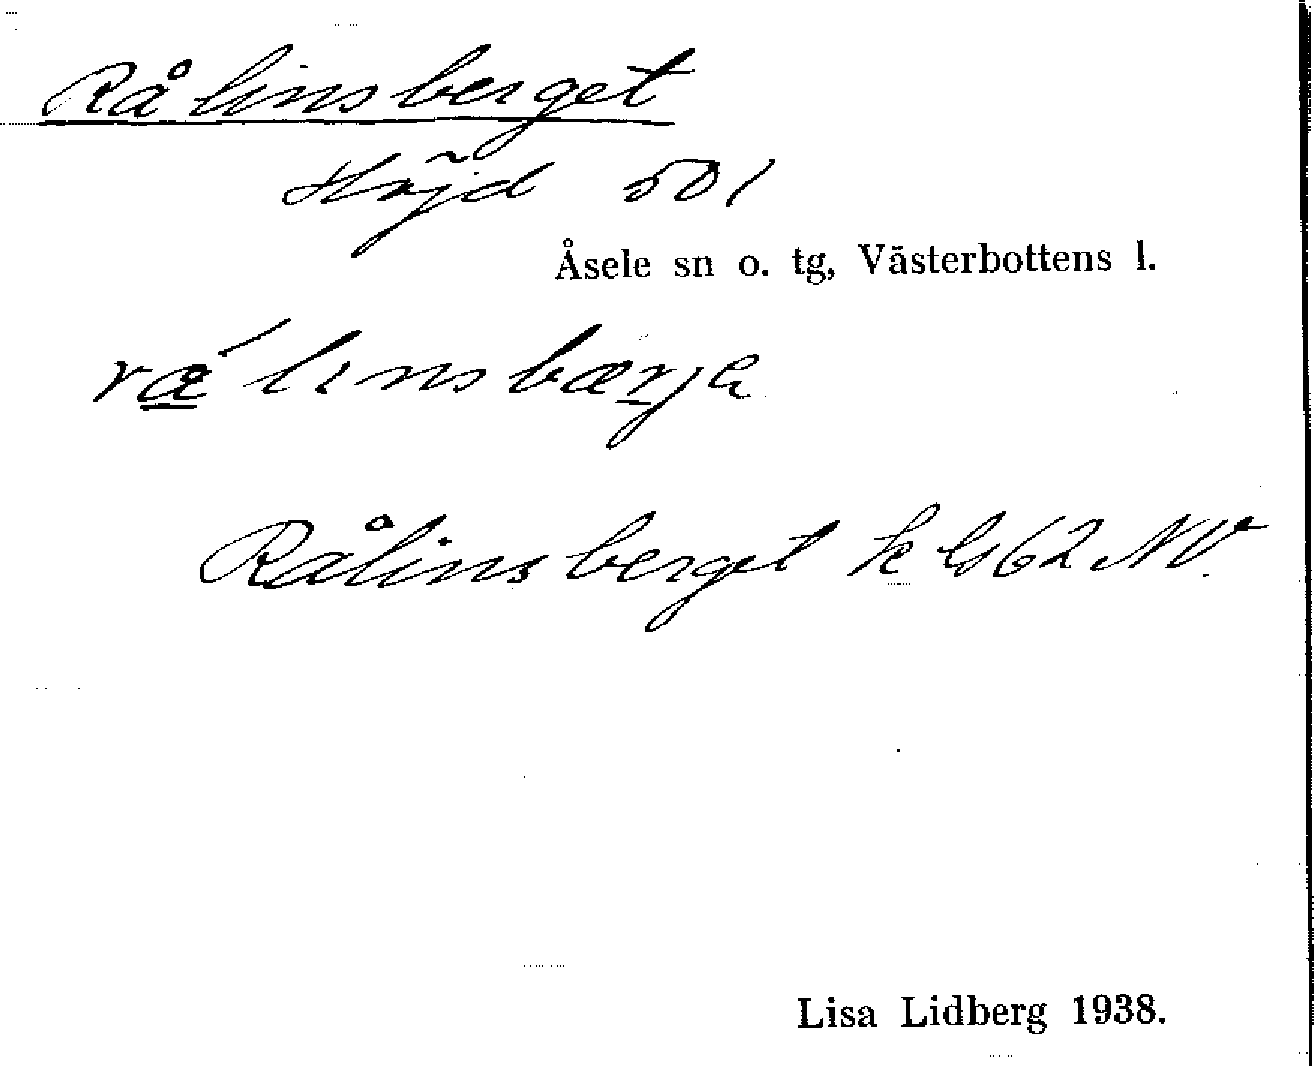 Rålinsberget
Höjd 501
Åsele sn o. tg, Västerbottens l.
ræ´linsbærjə
Rålinsberget k bl 62 NV.
Lisa Lidberg 1938.